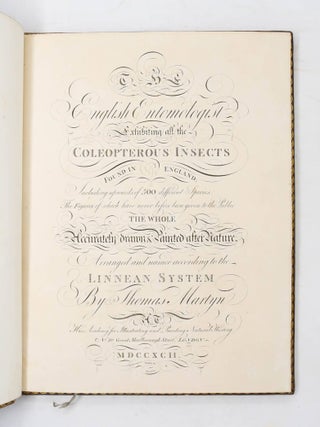 THE
English Entomologist
Exhibiting all the
COLEOPTEROUS INSECTS
FOUND IN ENGLAND
Including upwards of 500 different Species
The Figures of which have never before been given to the Public
THE WHOLE
Accurately drawn & Painted after Nature.
Arranged and named according to the
LINNEAN SYSTEM
By Thomas Martyn
AT
His Academy for Illustrating and Painting Natural History
No. 10 Great Marlborough Street LONDON
MDCCXCII.